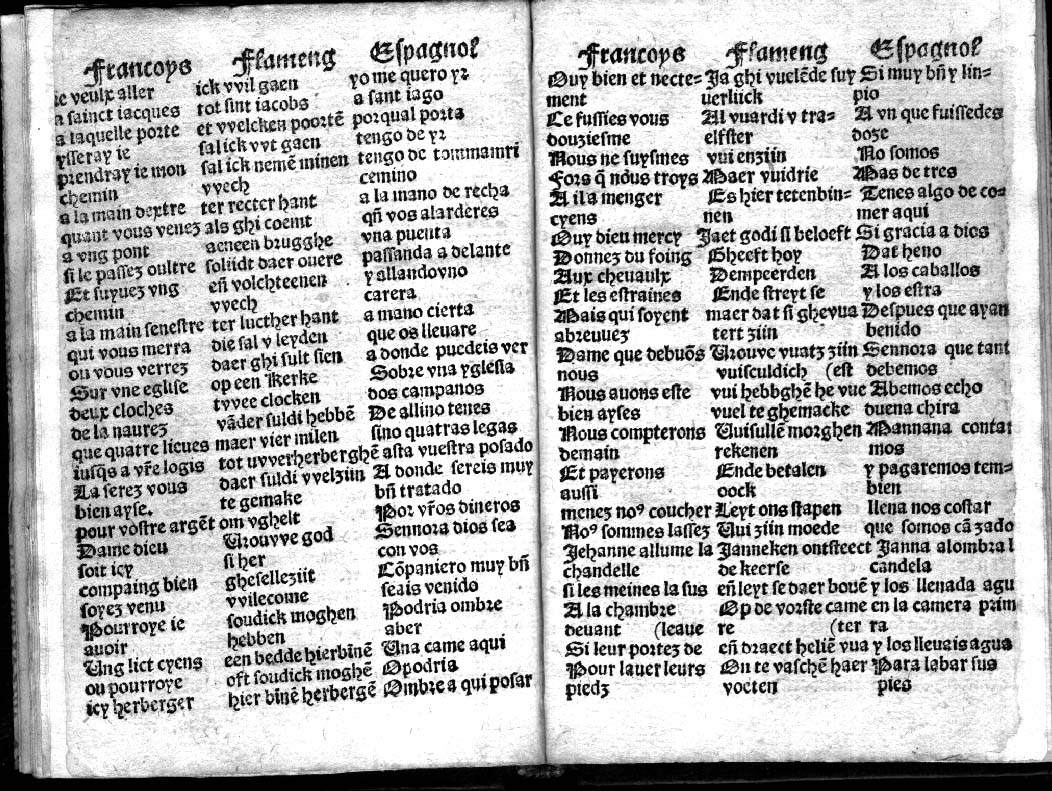 Francoys
ie veulx aller
a sainct iacques
a laquelle porte
ysseray ie
prendray ie mon
chemin
a la main dextre
quant vous venez
a vng pont
si le passez oultre
Et suyuez vng
chemin
a la main senestre
qui vous merra
ou vous verrez
Sur vne eglise
deux cloches
de la naurez
que quatre lieues
iusqs a vr̄e logis
La serez vous
bien ayse.
pour vostre argēt
Dame dieu
soit icy
compaing bien
soyez venu
Pourroye ie
auoir
Ung lict cyens
ou pourroye
icy herberger
Flameng
ick vvil gaen
tot sint iacobs
et vvelcken poortē
sal ick vvt gaen
sal ick nemē minen
vvech
ter recter hant
als ghi coemt
aeneen brugghe
soliidt daer ouere
en̄ volchteenen
vvech
ter lucther hant
die sal v leyden
daer ghi sult sien
op een Kerke
tyvee clocken
vāder suldi hebbē
maer vier milen
tot uvverherberghē
daer suldi vvelziin
te gemake
om vghelt
Vrouvve god
si her
gheselleziit
vvilecome
soudick moghen
hebben
een bedde hierbinē
oft soudick moghē
hier binē herbergē
Espagnol
yo me quero yr
a sant iago
porqual porta
tengo de yr
tengo de tommamri
cemino
a la mano de recha
qn̄ vos alarderes
vna puenta
passanda a delante
y allandovno
carera
a mano cierta
que os lleuare
a donde puedeis ver
Sobre vna yglesia
dos campanos
De allino tenes
sino quatras legas
asta vuestra posado
A donde sereis muy
bn̄ tratado
Por vr̄os dineros
Sennora dios sea
con vos
Cōpaniero muy bn̄
seais venido
Podria ombre
aber
Una came aqui
Opodria
Ombre a qui posar
Francoys
Ouy bien et necte=
ment
Le fussies vous
douziesme
Nous ne suysmes
Fors q̄ nous troys
A il a menger
cyens
Ouy dieu mercy
Donnez du foing
Aux cheuaulx
Et les estraines
Mais qui soyent
abreuuez
Dame que debuōs
nous
Nous auons este
bien ayses
Nous compterons
demain
Et payerons
aussi
menez noꝰ coucher
Noꝰ sommes lassez
Jehanne allume la
chandelle
si les meines la sus
A la chambre
deuant (leaue
Si leur portez de
Pour lauer leurs
piedz
Flameng
Ja ghi vuelēde suy
uerliick
Al vuardi v tra=
elfster
vui enziin
Maer vuidrie
Es hier tetenbin=
nen
Jaet godi si beloeft
Gheeft hoy
Dempeerden
Ende streyt se
maer dat si ghevua
tert ziin
Vrouve vuatz ziin
vuisculdich (est
vui hebbghē he vue
vuel te ghemacke
Uuisullē morghen
rekenen
Ende betalen
oock
Leyt ons slapen
Uui ziin moede
Janneken ontsteect
de keerse
en̄ leyt se daer bouē
Op de vorste came
re (ter
en̄ draect heliē vua
On te vaschē haer
voeten
Espagnol
Si muy bn̄ y lin=
pio
A vn que fuissedes
doze
No somos
Mas de tres
Tenes algo de co=
mer aqui
Si gracia a dios
Dat heno
A los caballos
y los estra
Despues que ayan
benido
Sennora que tant
debemos
Abemos echo
buena chira
Mannana contar
mos
y pagaremos tem=
bien
llena nos costar
que somos cā zado
Janna alombral
candela
y los llenada agu
en la camera prim
ra
y los lleuais agua
Para labar sus
pies